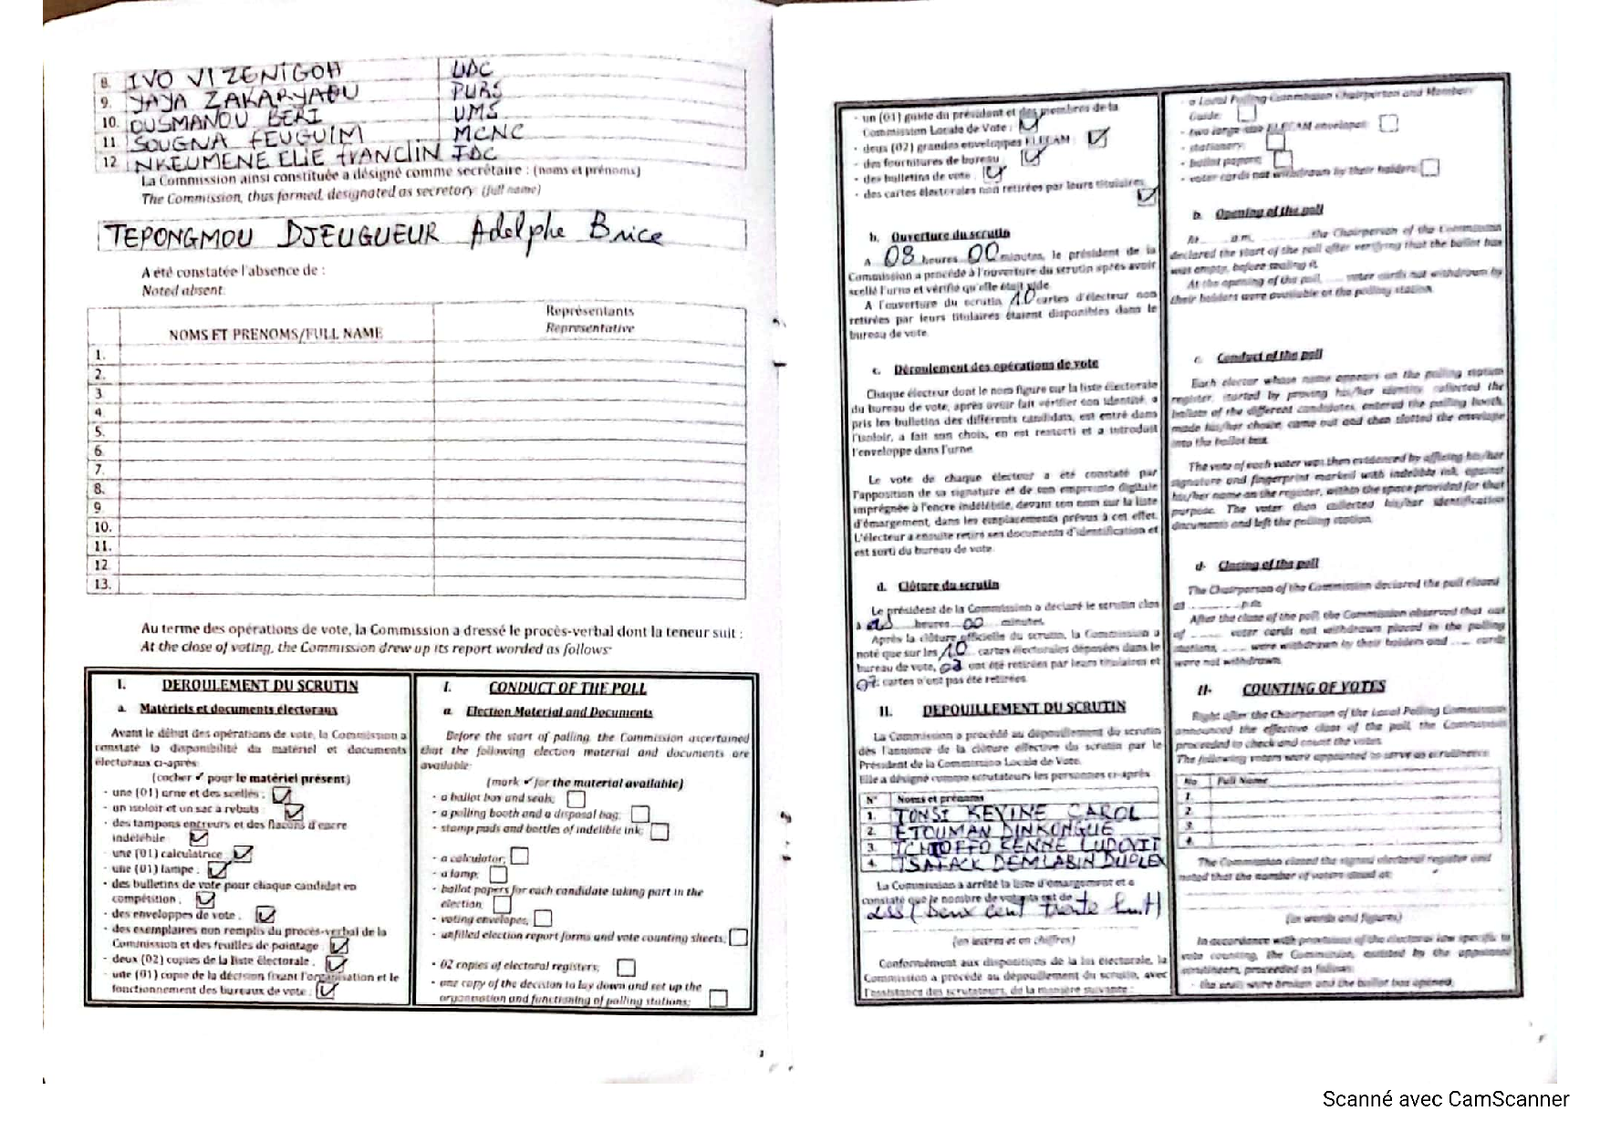 8. IVO VIZENIGOH UDC
9. YAYA ZAKARYAOU PURS
10. OUSMANOU BERI UMS
11 SOUGNA FEUGUIM MCNC
12 NKEUMENE ELIE FRANCLIN FDC
La Commission ainsi constituée a désigné comme secrétaire : (noms et prénoms)
The Commission, thus formed, designated as secretory: (full name)
TEPONGMOU DJEUGUEUR Adolphe Brice
A été constatée l'absence de :
Noted absent:
NOMS ET PRENOMS/FULL NAME
Représentants
Representative
1.
2.
3.
4.
5.
6.
7.
8.
9.
10.
11.
12.
13.
Au terme des opérations de vote, la Commission a dressé le procès-verbal dont la teneur suit :
At the close of voting, the Commission drew up its report worded as follows:
I. DEROULEMENT DU SCRUTIN
a. Matériels et documents électoraux
Avant le début des opérations de vote, la Commission a
constaté la disponibilité du matériel et documents
électoraux ci-après:
(cocher ✓ pour le matériel présent)
- une (01) urne et des scellés :
- un isoloir et un sac à rebuts :
- des tampons encreurs et des flacons d'encre
indélébile :
- une (01) calculatrice :
- une (01) lampe :
- des bulletins de vote pour chaque candidat en
compétition :
- des enveloppes de vote :
- des exemplaires non remplis du procès-verbal de la
Commission et des feuilles de pointage :
- deux (02) copies de la liste électorale :
- une (01) copie de la décision fixant l'organisation et le
fonctionnement des bureaux de vote :
I. CONDUCT OF THE POLL
a. Election Material and Documents
Before the start of polling, the Commission ascertained
that the following election material and documents are
available:
(mark ✓ for the material available)
- a ballot box and seals;
- a polling booth and a disposal bag;
- stamp pads and bottles of indelible ink;
- a calculator;
- a lamp;
- ballot papers for each candidate taking part in the
election;
- voting envelopes;
- unfilled election report forms and vote counting sheets;
- 02 copies of electoral registers;
- one copy of the decision to lay down and set up the
organisation and functioning of polling stations;
- un (01) guide du président et des membres de la
Commission Locale de Vote :
- deux (02) grandes enveloppes ELECAM :
- des fournitures de bureau :
- des bulletins de vote :
- des cartes électorales non retirées par leurs titulaires
b. Ouverture du scrutin
A 08 heures 00 minutes, le président de la
Commission a procédé à l'ouverture du scrutin après avoir
scellé l'urne et vérifié qu'elle était vide.
A l'ouverture du scrutin 10 cartes d'électeur non
retirées par leurs titulaires étaient disponibles dans le
bureau de vote.
c. Déroulement des opérations de vote
Chaque électeur dont le nom figure sur la liste électorale
du bureau de vote, après avoir fait vérifier son identité, a
pris les bulletins des différents candidats, est entré dans
l'isoloir, a fait son choix, en est ressorti et a introduit
l'enveloppe dans l'urne.
Le vote de chaque électeur a été constaté par
l'apposition de sa signature et de son empreinte digitale
imprégnée à l'encre indélébile, devant son nom sur la liste
d'émargement, dans les emplacements prévus à cet effet.
L'électeur a ensuite retiré ses documents d'identification et
est sorti du bureau de vote.
d. Clôture du scrutin
Le président de la Commission a déclaré le scrutin clos
à heures 00 minutes.
Après la clôture officielle du scrutin, la Commission a
noté que sur les 10 cartes électorales déposées dans le
bureau de vote, 03 ont été retirées par leurs titulaires et
07 cartes n'ont pas été retirées.
II. DEPOUILLEMENT DU SCRUTIN
La Commission a procédé au dépouillement du scrutin
dès l'annonce de la clôture effective du scrutin par le
Président de la Commission Locale de Vote.
Elle a désigné comme scrutateurs les personnes ci-après
N° Noms et prénoms
1. TONSI KEVINE CAROL
2. ETOUMAN DINKONGUE
3. TCHOFFO KENNE LUDOVIT
4. TSAFACK DEMLABIN DUPLEX
La Commission a arrêté la liste d'émargement et a
constaté que le nombre de votants est de
238 (Deux cent trente huit)
(en lettres et en chiffres)
Conformément aux dispositions de la loi électorale, la
Commission a procédé au dépouillement du scrutin, avec
l'assistance des scrutateurs, de la manière suivante :
- a Local Polling Commission Chairperson and Members'
Guide:
- two large-size ELECAM envelopes:
- stationery:
- ballot papers:
- voter cards not withdrawn by their holders:
b. Opening of the poll
At a.m, the Chairperson of the Commission
declared the start of the poll after verifying that the ballot box
was empty, before sealing it.
At the opening of the poll, voter cards not withdrawn by
their holders were available at the polling station.
c. Conduct of the poll
Each elector whose name appears on the polling station
register, started by proving his/her identity, collected the
ballots of the different candidates, entered the polling booth,
made his/her choice, came out and then slotted the envelope
into the ballot box.
The vote of each voter was then evidenced by affixing his/her
signature and fingerprint marked with indelible ink, against
his/her name on the register, within the space provided for that
purpose. The voter then collected his/her identification
documents and left the polling station.
d- Closing of the poll
The Chairperson of the Commission declared the poll closed
at p.m.
After the close of the poll, the Commission observed that out
of voter cards not withdrawn placed in the polling
stations, were withdrawn by their holders and cards
were not withdrawn.
II- COUNTING OF VOTES
Right after the Chairperson of the Local Polling Commission
announced the effective close of the poll, the Commission
proceeded to check and count the votes.
The following voters were appointed to serve as scrutineers:
No Full Name
1.
2.
3.
4.
The Commission closed the signed electoral register and
noted that the number of voters stood at:
(in words and figures)
In accordance with provisions of the electoral law specific to
vote counting, the Commission, assisted by the appointed
scrutineers, proceeded as follows:
- the seals were broken and the ballot box opened;
Scanné avec CamScanner